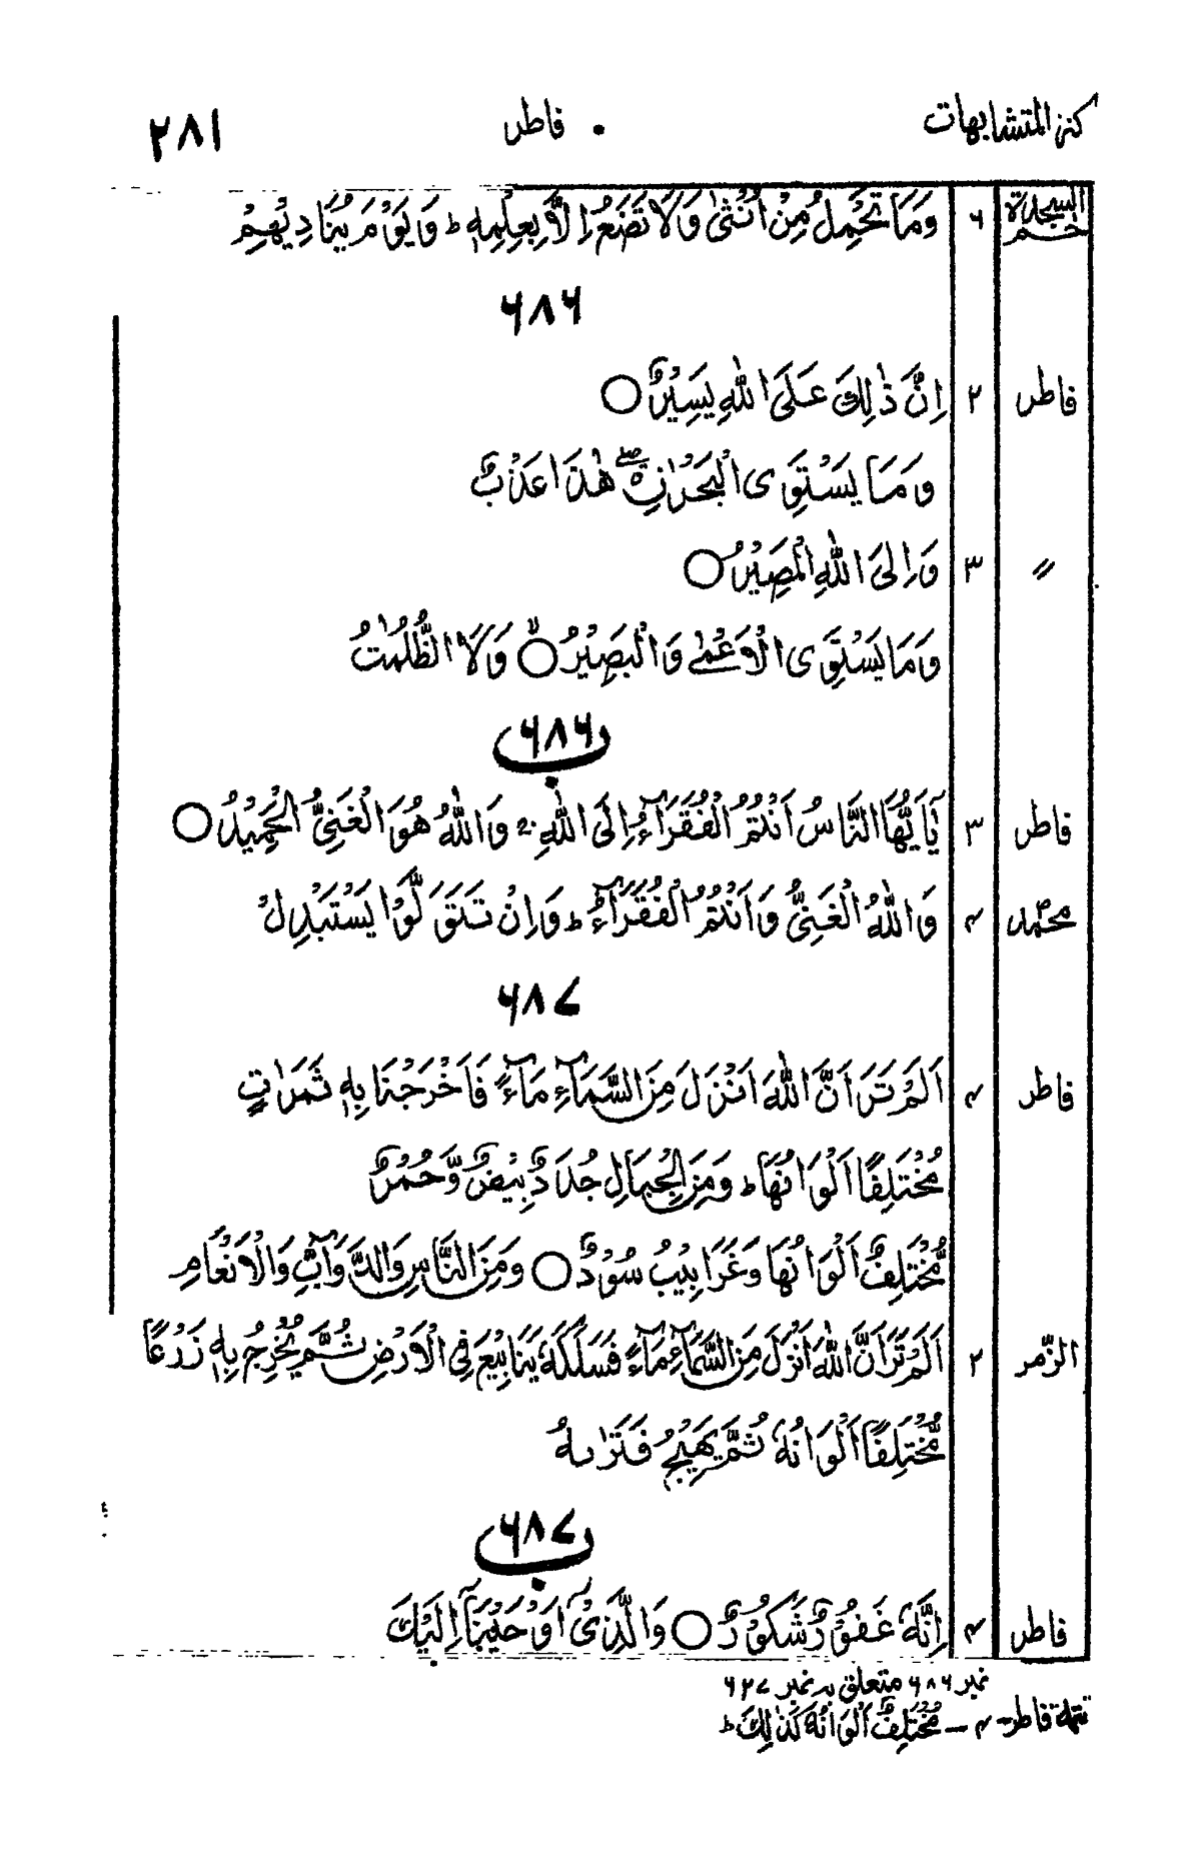 كنز المتشابهات • فاطر ٢٨١
حٰم السجدة ٦ وَمَا تَحْمِلُ مِنْ اُنْثٰى وَلَا تَضَعُ اِلَّا بِعِلْمِهٖ ؕ وَيَوْمَ يُنَادِيْهِمْ
٦٨٦
فاطر ٢ اِنَّ ذٰلِكَ عَلَى اللّٰهِ يَسِيْرٌ ○
وَمَا يَسْتَوِى الْبَحْرٰنِ ۖ هٰذَا عَذْبٌ
〃 ٣ وَاِلَى اللّٰهِ الْمَصِيْرُ ○
وَمَا يَسْتَوِى الْاَعْمٰى وَالْبَصِيْرُ ○ۙ وَلَا الظُّلُمٰتُ
٦٨٦ ب
فاطر ٣ يٰۤاَيُّهَا النَّاسُ اَنْتُمُ الْفُقَرَآءُ اِلَى اللّٰهِ ۚ وَاللّٰهُ هُوَ الْغَنِىُّ الْحَمِيْدُ ○
محمد ٤ وَاللّٰهُ الْغَنِىُّ وَاَنْتُمُ الْفُقَرَآءُ ؕ وَاِنْ تَتَوَلَّوْا يَسْتَبْدِلْ
٦٨٧
فاطر ٤ اَلَمْ تَرَ اَنَّ اللّٰهَ اَنْزَلَ مِنَ السَّمَآءِ مَآءً فَاَخْرَجْنَا بِهٖ ثَمَرٰتٍ
مُّخْتَلِفًا اَلْوَانُهَا ؕ وَمِنَ الْجِبَالِ جُدَدٌۢ بِيْضٌ وَّحُمْرٌ
مُّخْتَلِفٌ اَلْوَانُهَا وَغَرَابِيْبُ سُوْدٌ ○ وَمِنَ النَّاسِ وَالدَّوَآبِّ وَالْاَنْعَامِ
الزّمر ٢ اَلَمْ تَرَ اَنَّ اللّٰهَ اَنْزَلَ مِنَ السَّمَآءِ مَآءً فَسَلَكَهٗ يَنَابِيْعَ فِى الْاَرْضِ ثُمَّ يُخْرِجُ بِهٖ زَرْعًا
مُّخْتَلِفًا اَلْوَانُهٗ ثُمَّ يَهِيْجُ فَتَرٰىهُ
٦٨٧ ب
فاطر ٤ اِنَّهٗ غَفُوْرٌ شَكُوْرٌ ○ وَالَّذِىْۤ اَوْحَيْنَاۤ اِلَيْكَ
نمبر ٦٨٦ متعلق بہ نمبر ٦٢٧
تتمۃ فاطر - ٤ - مُخْتَلِفٌ اَلْوَانُهٗ كَذٰلِكَ ؕ